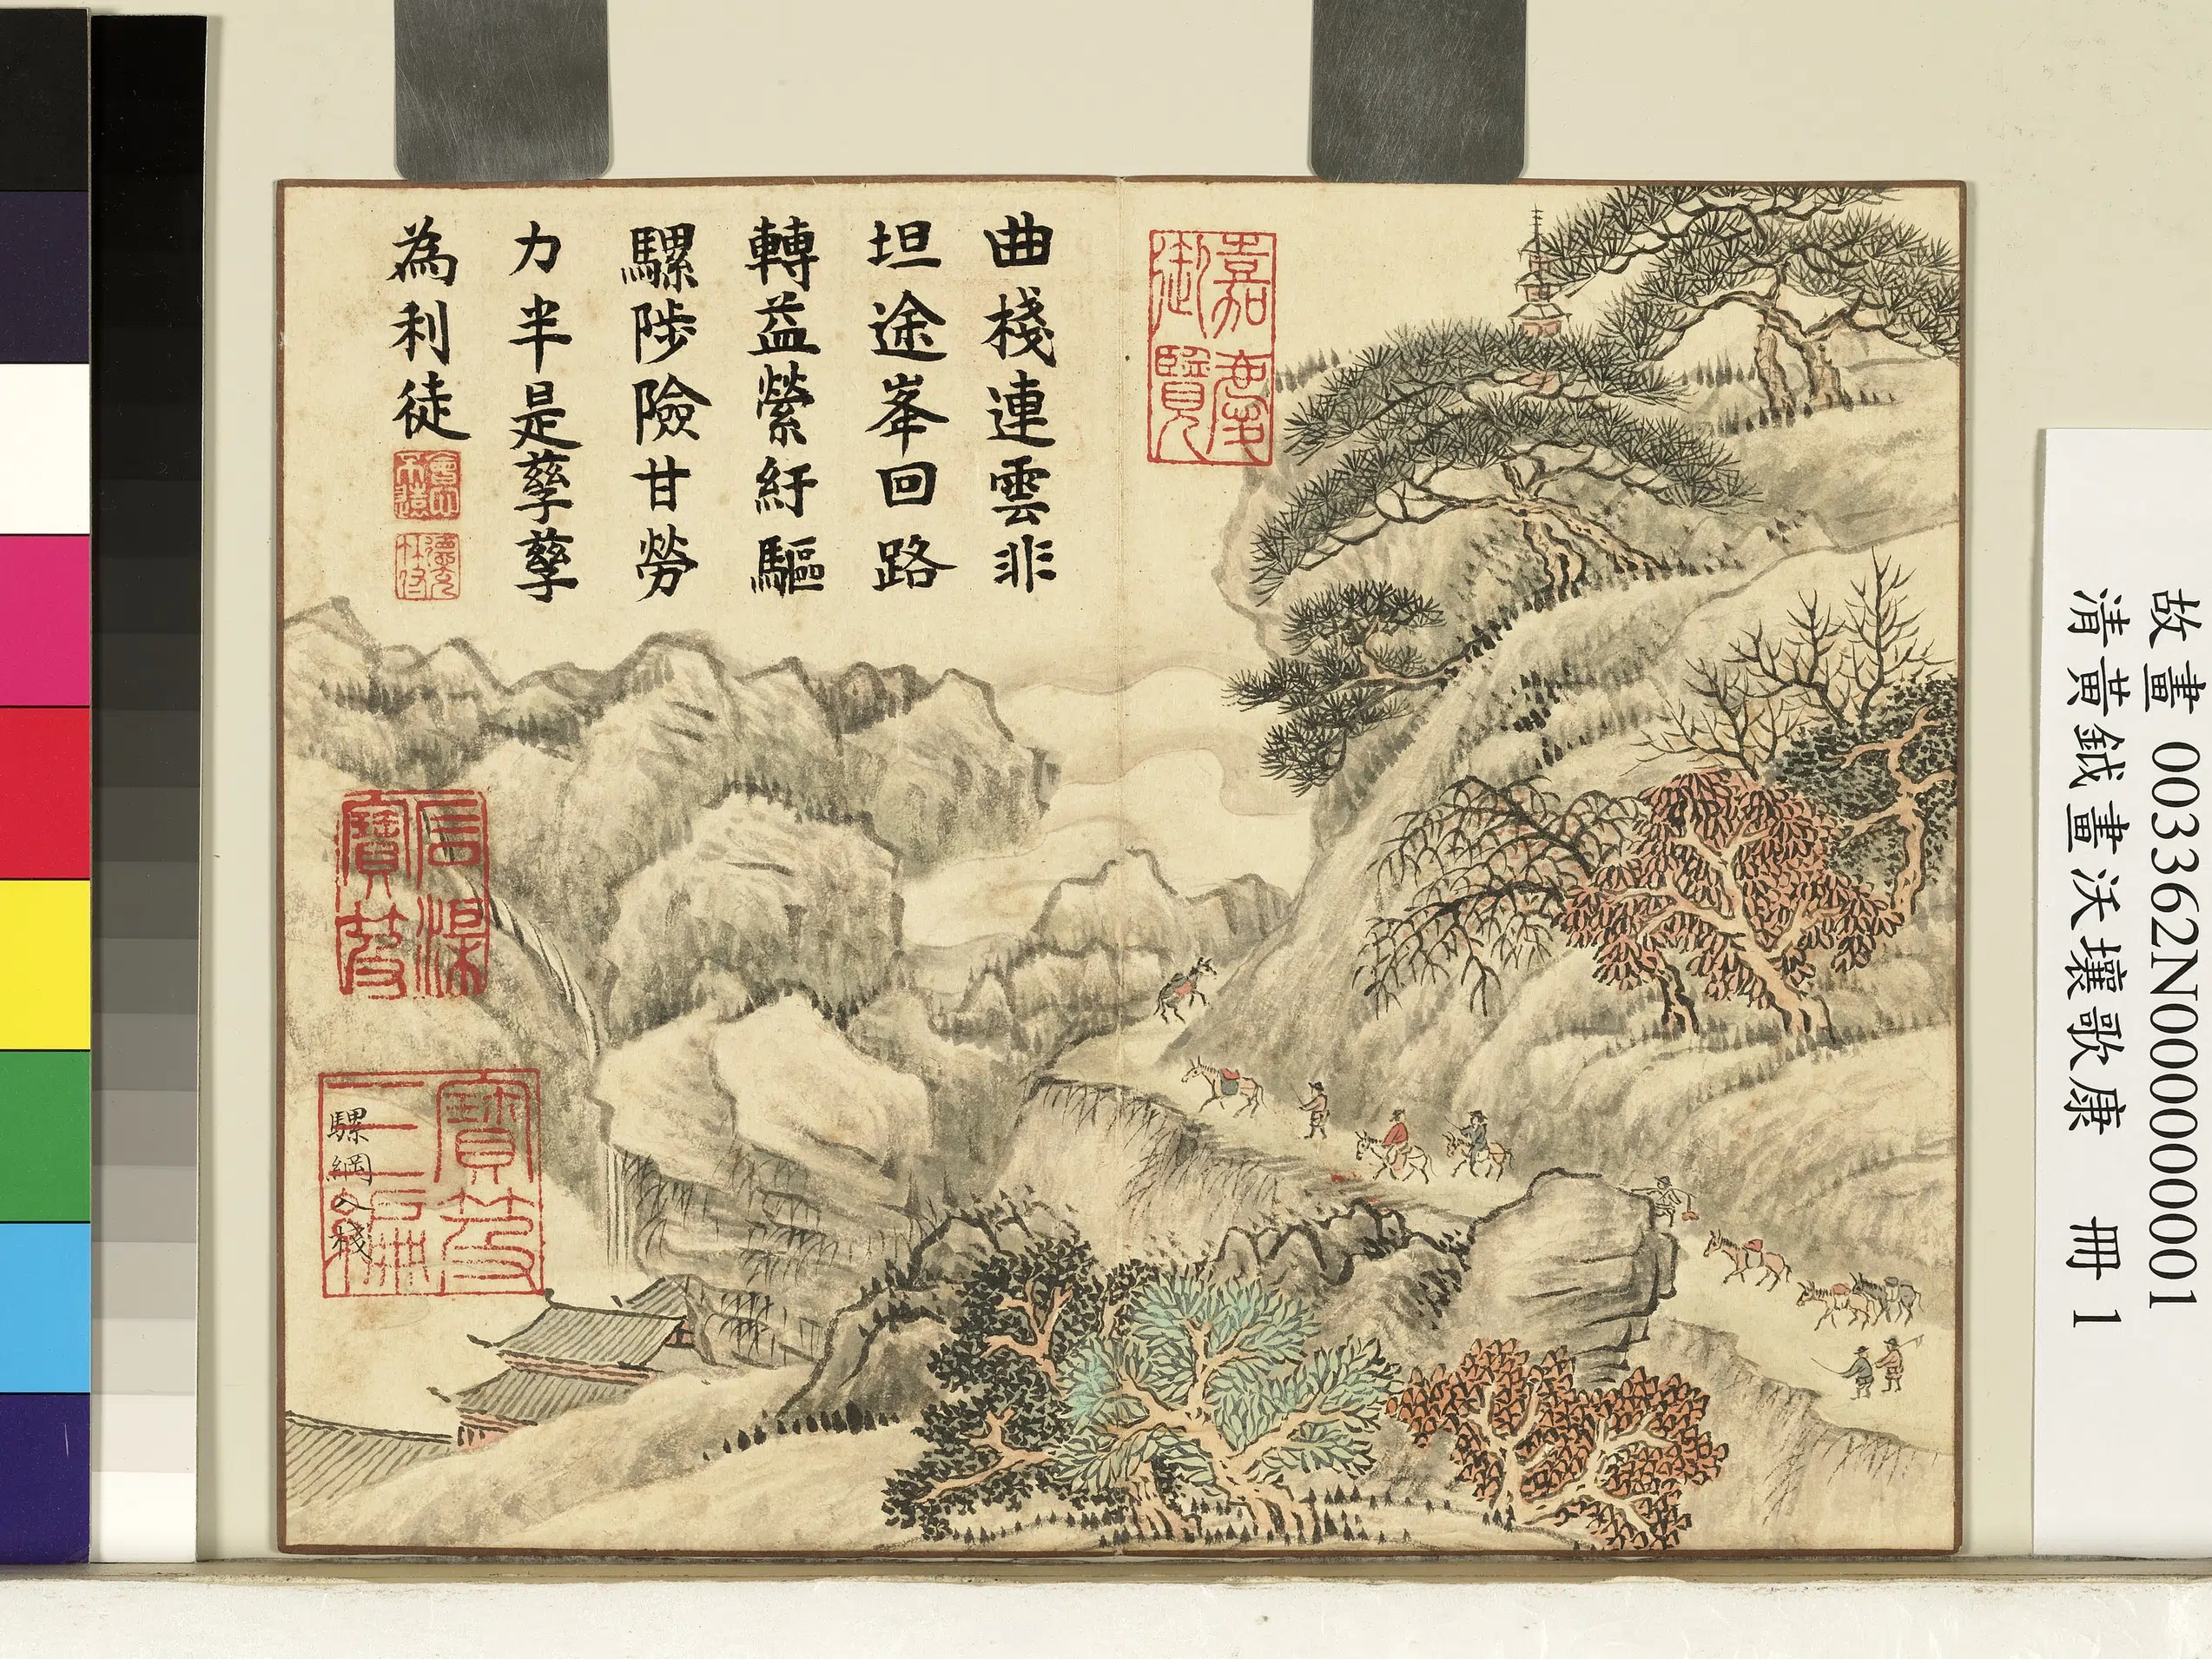 曲棧連雲非
坦途峯回路
轉益縈紆驅
騾陟險甘勞
力半是孳孳
為利徒
嘉慶
御覽
寶笈
三編
騾綱入棧
故畫 003362N000000001
清黃鉞畫沃壤歌康 冊 1